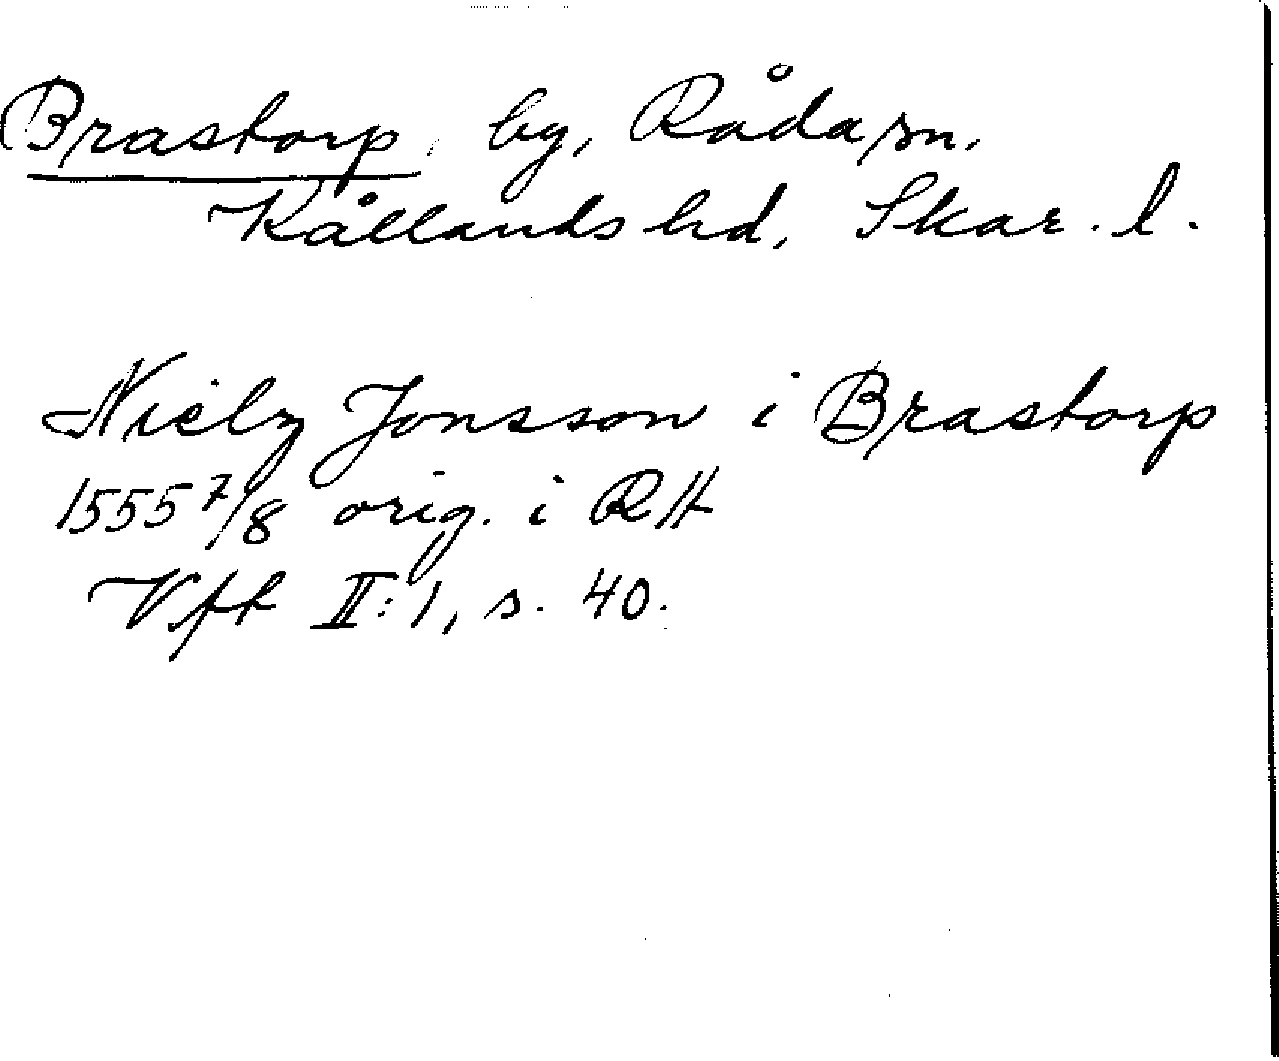 Brastorp, by, Råda sn,
Kållands hd, Skar. l.
Nielz Jonsson i Brastorp
1555 7/8 orig. i RH
Vft II:1, s. 40.